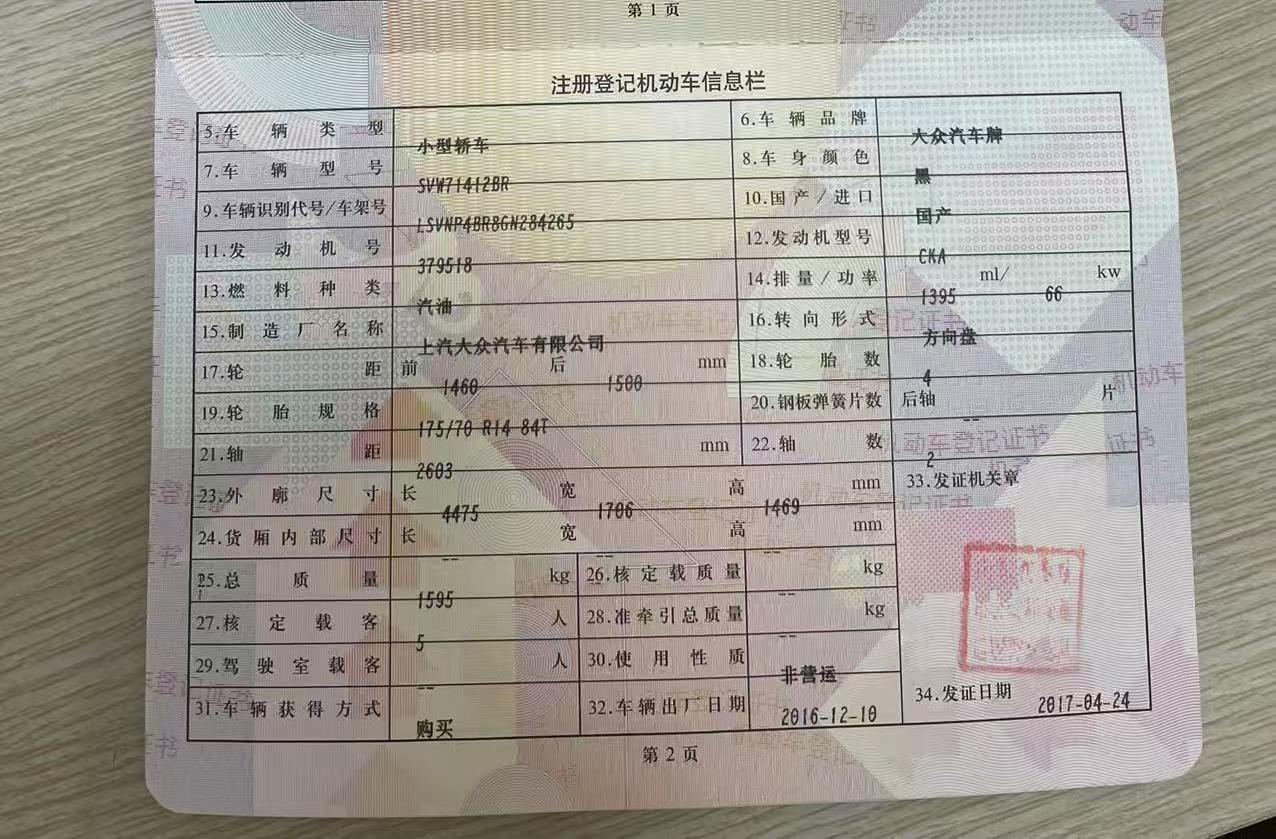 第 1 页
注册登记机动车信息栏
5.车辆类型 小型轿车 6.车辆品牌 大众汽车牌
7.车辆型号 SVW71412BR 8.车身颜色 黑
9.车辆识别代号/车架号 LSVNP4BR8GN284265 10.国产/进口 国产
11.发动机号 379518 12.发动机型号 CKA
13.燃料种类 汽油 14.排量/功率 1395 ml/ 66 kw
15.制造厂名称 上汽大众汽车有限公司 16.转向形式 方向盘
17.轮距 前 1460 后 1500 mm 18.轮胎数 4
19.轮胎规格 175/70 R14 84T 20.钢板弹簧片数 后轴 -- 片
21.轴距 2603 mm 22.轴数 2
23.外廓尺寸 长 4475 宽 1706 高 1469 mm 33.发证机关章
24.货厢内部尺寸 长 -- 宽 -- 高 -- mm
25.总质量 1595 kg 26.核定载质量 -- kg
27.核定载客 5 人 28.准牵引总质量 -- kg
29.驾驶室载客 -- 人 30.使用性质 非营运
31.车辆获得方式 购买 32.车辆出厂日期 2016-12-10 34.发证日期 2017-04-24
第 2 页